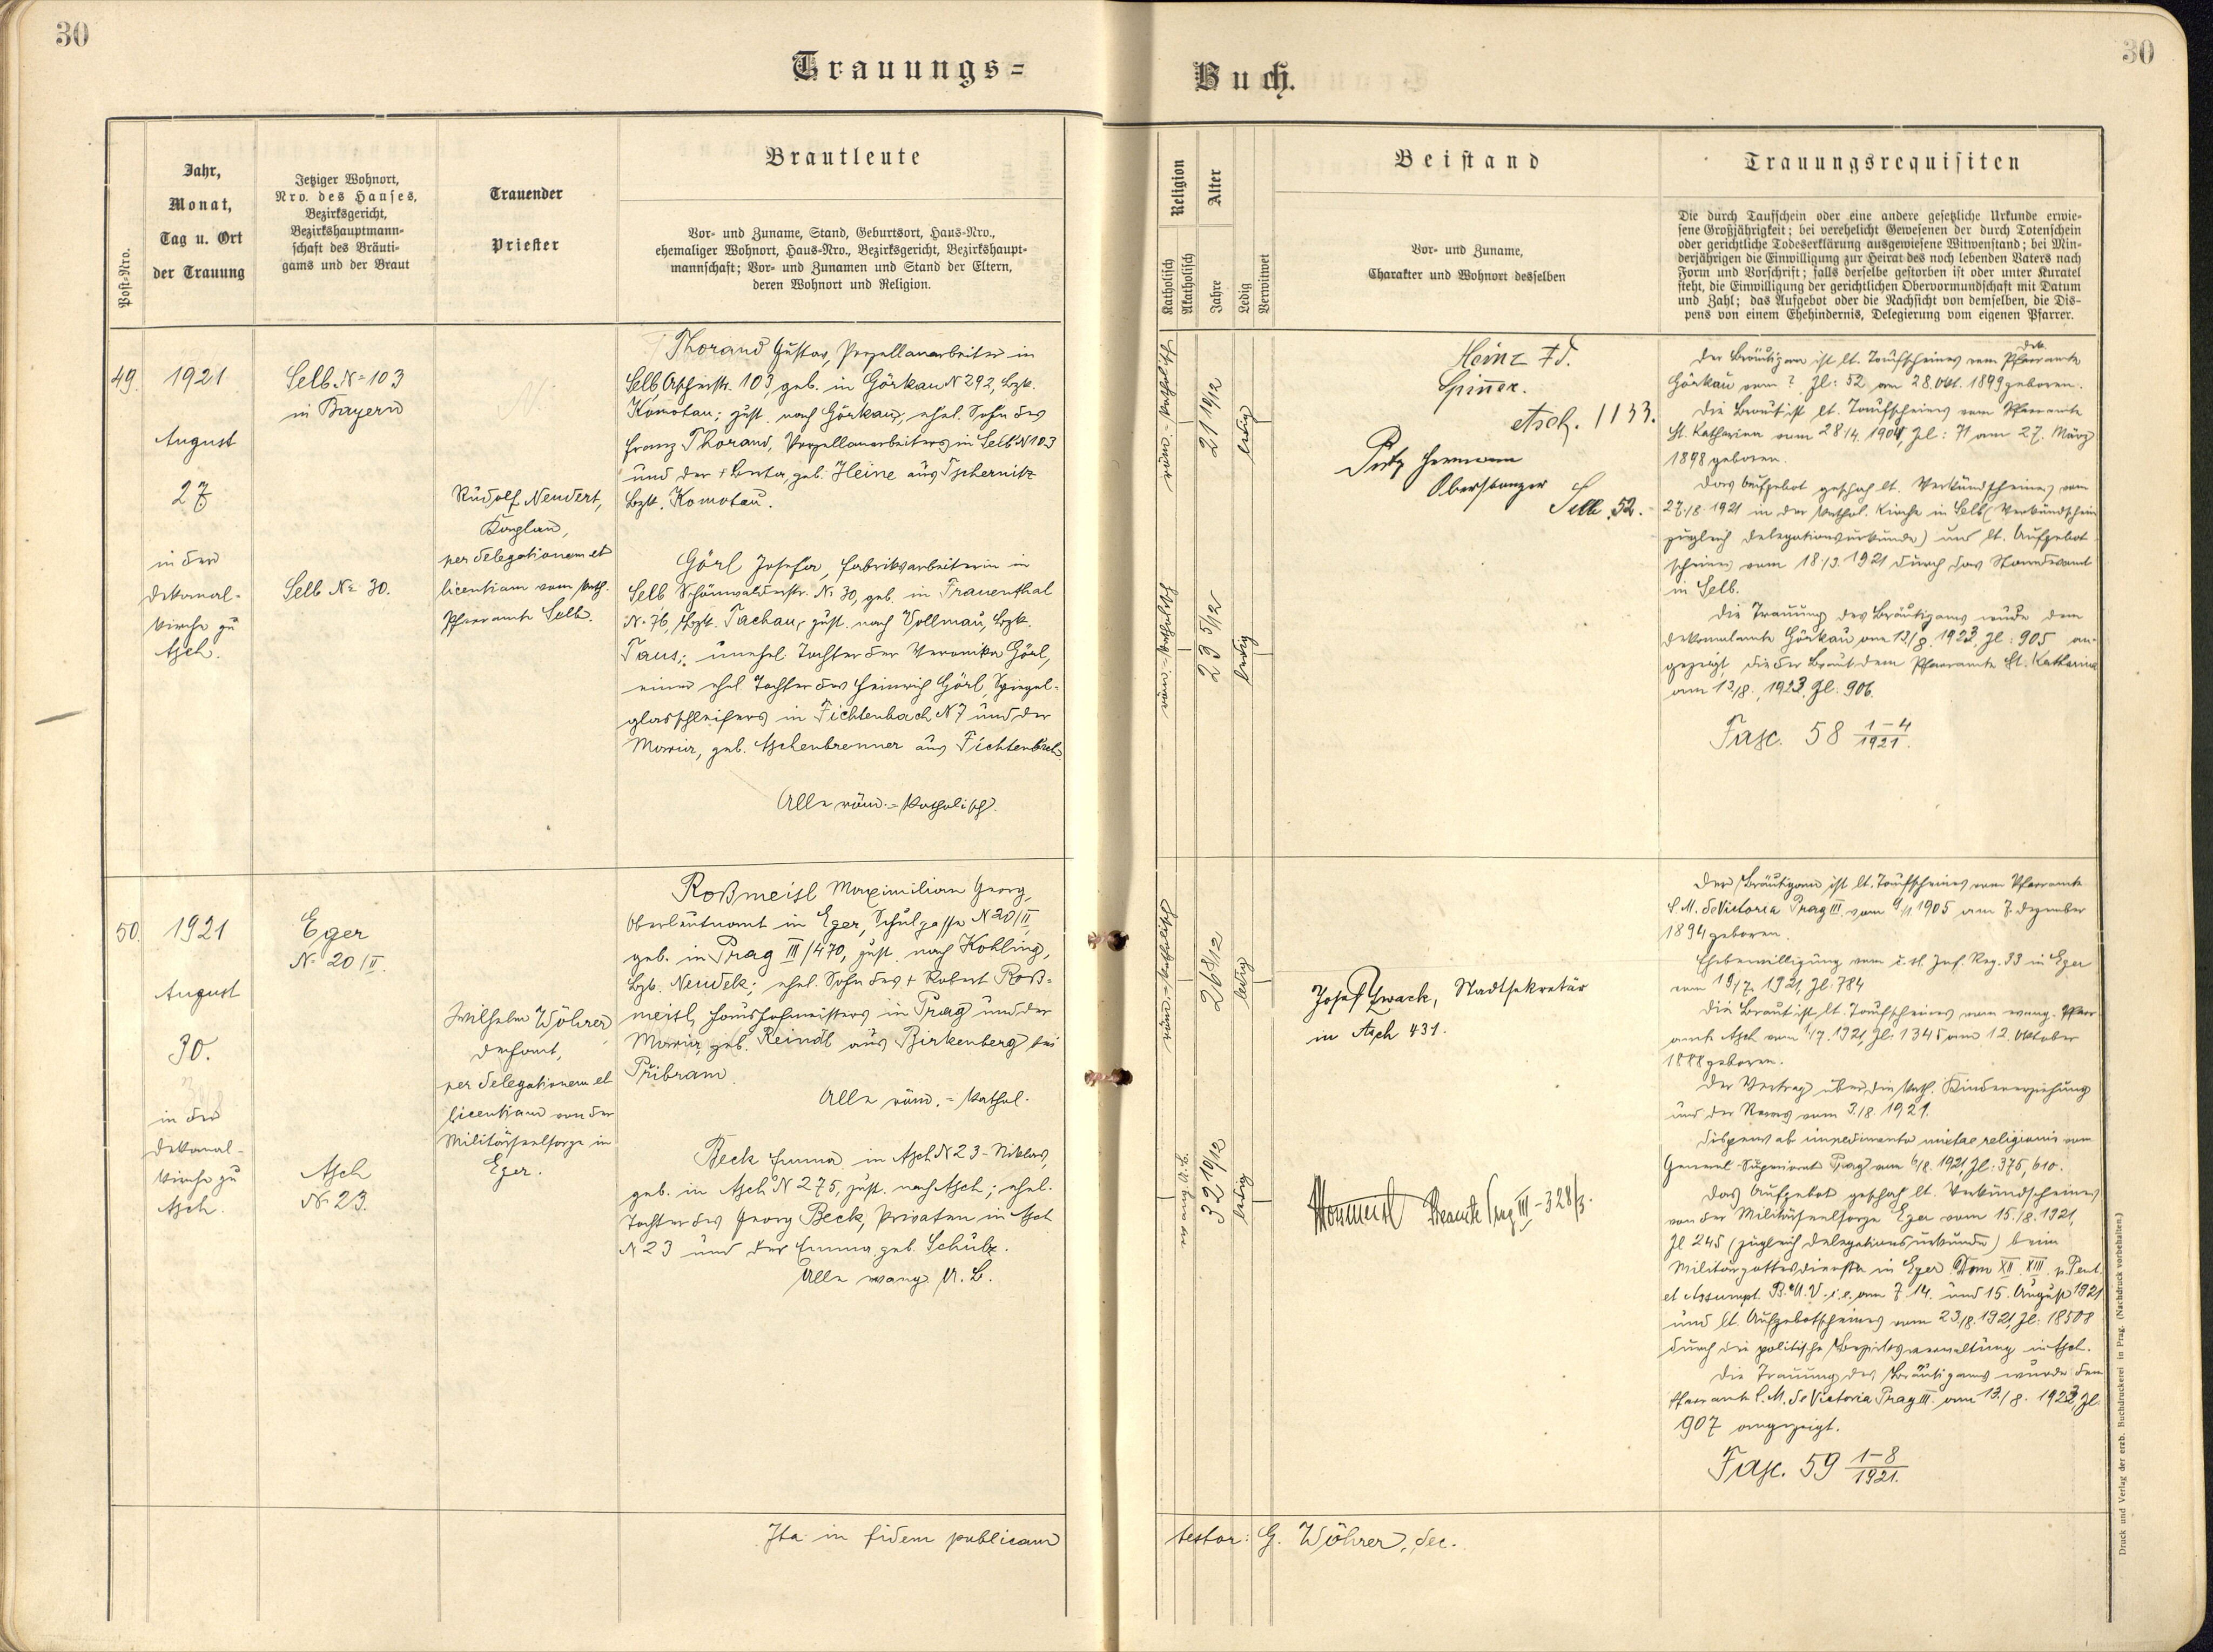 30
30
Trauungs=
Buch.
Post-Nro.
Jahr,
Monat,
Tag u. Ort
der Trauung
Jetziger Wohnort,
Nro. des Hauses,
Bezirksgericht,
Bezirkshauptmann-
schaft des Bräuti-
gams und der Braut
Trauender
Priester
Brautleute
Vor- und Zuname, Stand, Geburtsort, Haus-Nro.,
ehemaliger Wohnort, Haus-Nro., Bezirksgericht, Bezirkshaupt-
mannschaft; Vor- und Zunamen und Stand der Eltern,
deren Wohnort und Religion.
Religion
Katholisch
Akatholisch
Alter
Jahre
Ledig
Verwitwet
Beistand
Vor- und Zuname,
Charakter und Wohnort desselben
Trauungsrequisiten
Die durch Taufschein oder eine andere gesetzliche Urkunde erwie-
sene Großjährigkeit; bei verehelicht Gewesenen der durch Totenschein
oder gerichtliche Todeserklärung ausgewiesene Witwenstand; bei Min-
derjährigen die Einwilligung zur Heirat des noch lebenden Vaters nach
Form und Vorschrift; falls derselbe gestorben ist oder unter Kuratel
steht, die Einwilligung der gerichtlichen Obervormundschaft mit Datum
und Zahl; das Aufgebot oder die Nachsicht von demselben, die Dis-
pens von einem Ehehindernis, Delegierung vom eigenen Pfarrer.
49.
1921
August
27
in der
Dekanal-
kirche zu
Asch.
Selb N=103
in Bayern
Selb No 30.
Rudolf Neudert,
Kaplan,
per delegationem et
licentiam vom kath.
Pfarramte Selb.
Thorand Gustav, Porzellanarbeiter in
Selb, Ascherstr. 103, geb. in Görkau N 292, Bzk.
Komotau; zust. nach Görkau; ehel. Sohn des
Franz Thorand, Porzellanarbeiters in Selb N 103
und der + Berta, geb. Heine aus Tschernitz
Bzk. Komotau.
Görl Josefa, Fabriksarbeiterin in
Selb Schönwalderstr. N. 30, geb. in Frauenthal
N. 76, Bzk. Tachau, zust. nach Vollmau, Bzk.
Taus; unehel. Tochter der Veronika Görl,
einer ehel. Tochter des Heinrich Görl, Spiegel-
glasschleifers in Fichtenbach N 7 und der
Maria, geb. Aschenbrenner aus Fichtenbach
Alle röm.=katholisch.
21 10/12
ledig
23 5/12
ledig
Heinz Fd.
Spinner.
Asch. 1133.
Putz Hermann
Selb 52.
dek
Der Bräutigam ist lt. Taufscheines vom Pfarramte
Görkau vom ? Zl: 52 am 28. Okt. 1899 geboren.
Die Braut ist lt. Taufscheines vom Pfarramte
St. Katharina vom 28/4. 1904, Zl: 71 am 27. März
1898 geboren.
Das Aufgebot geschah lt. Verkündscheines vom
27./8. 1921 in der kathol. Kirche in Selb (Verkündschein
zugleich Delegationsurkunde) und lt. Aufgebot-
scheines vom 18./3. 1921 durch das Standesamt
in Selb.
Die Trauung des Bräutigams wurde dem
Dekanalamte Görkau am 13/8. 1923, Zl: 905 an-
gezeigt, die der Braut dem Pfarramte St. Katharina
am 13/8. 1923, Zl: 906.
Fasc. 58 1-4/1921.
50.
1921
August
30.
in der
Dekanal-
kirche zu
Asch.
Eger
N= 20/II.
Asch
No 23.
Wilhelm Wöhrer
Dechant,
per delegationem et
licentiam von der
Militärseelsorge in
Eger.
Roßmeisl Maximilian Georg,
Oberleutnant in Eger, Schulgasse N 20/II,
geb. in Prag III/470, zust. nach Kohling,
Bzk. Neudek; ehel. Sohn des + Robert Roß-
meisl, Haushofmeisters in Prag und der
Maria, geb. Reindl aus Birkenberg bei
Přibram.
Alle röm.=kathol.
Beck Emma in Asch N 23 - Niklas,
geb. in Asch N 275, zust. nach Asch; ehel.
Tochter des Georg Beck, Privaten in Asch
N 23 und der Emma, geb. Schulz.
Alle evang. A. B.
26 8/12
ledig
32 10/12
ledig
Josef Zwack, Stadtsekretär
in Asch 431.
Prag III-328/3.
Der Bräutigam ist lt. Taufscheines vom Pfarramte
S. M. de Victoria Prag III. vom 9/11. 1905 am 7. Dezember
1894 geboren.
Ehebewilligung vom č. sl. Inf. Reg. 33 in Eger
vom 19/7. 1921, Zl: 784
Die Braut ist lt. Taufscheines vom evang. Pfarr-
amte Asch vom 1/7. 1921, Zl: 1345 am 12. Oktober
1888 geboren.
Der Vertrag über die kath. Kindererziehung
und der Revers vom 3./8. 1921.
Dispens ab impedimento mixtae religionis vom
General-Superiorat Prag vom 6/8. 1921, Zl: 375, 610.
Das Aufgebot geschah lt. Verkündscheines
von der Militärseelsorge Eger vom 15./8. 1921,
Zl 245 (zugleich Delegationsurkunde) beim
Militärgottesdienste in Eger Dom XII. XIII. p. Pent.
et Assumpt. B. M. V. i. e. am 7. 14. und 15. August 1921
und lt. Aufgebotscheines vom 23./8. 1921, Zl: 18508
durch die politische Bezirksverwaltung in Asch.
Die Trauung des Bräutigams wurde dem
Pfarramte S. M. de Victoria Prag III. am 13./8. 1923, Zl.
907 angezeigt.
Fasc. 59 1-8/1921.
Ita in fidem publicam
testor: G. Wöhrer, dec.
Druck und Verlag der erzb. Buchdruckerei in Prag. (Nachdruck vorbehalten.)